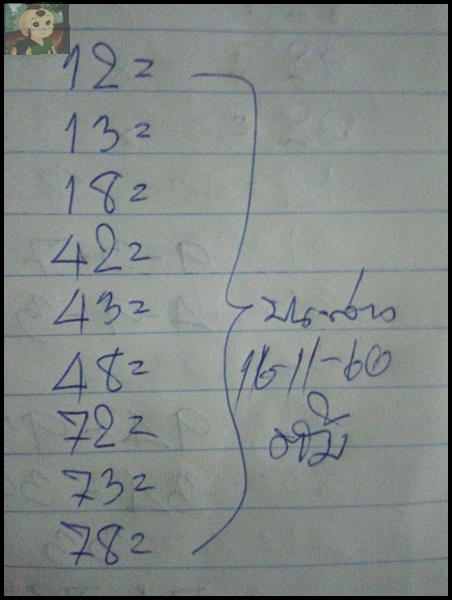 12=
13=
18=
42=
43=
48=
72=
73=
78=
บน-ล่าง
16-11-60